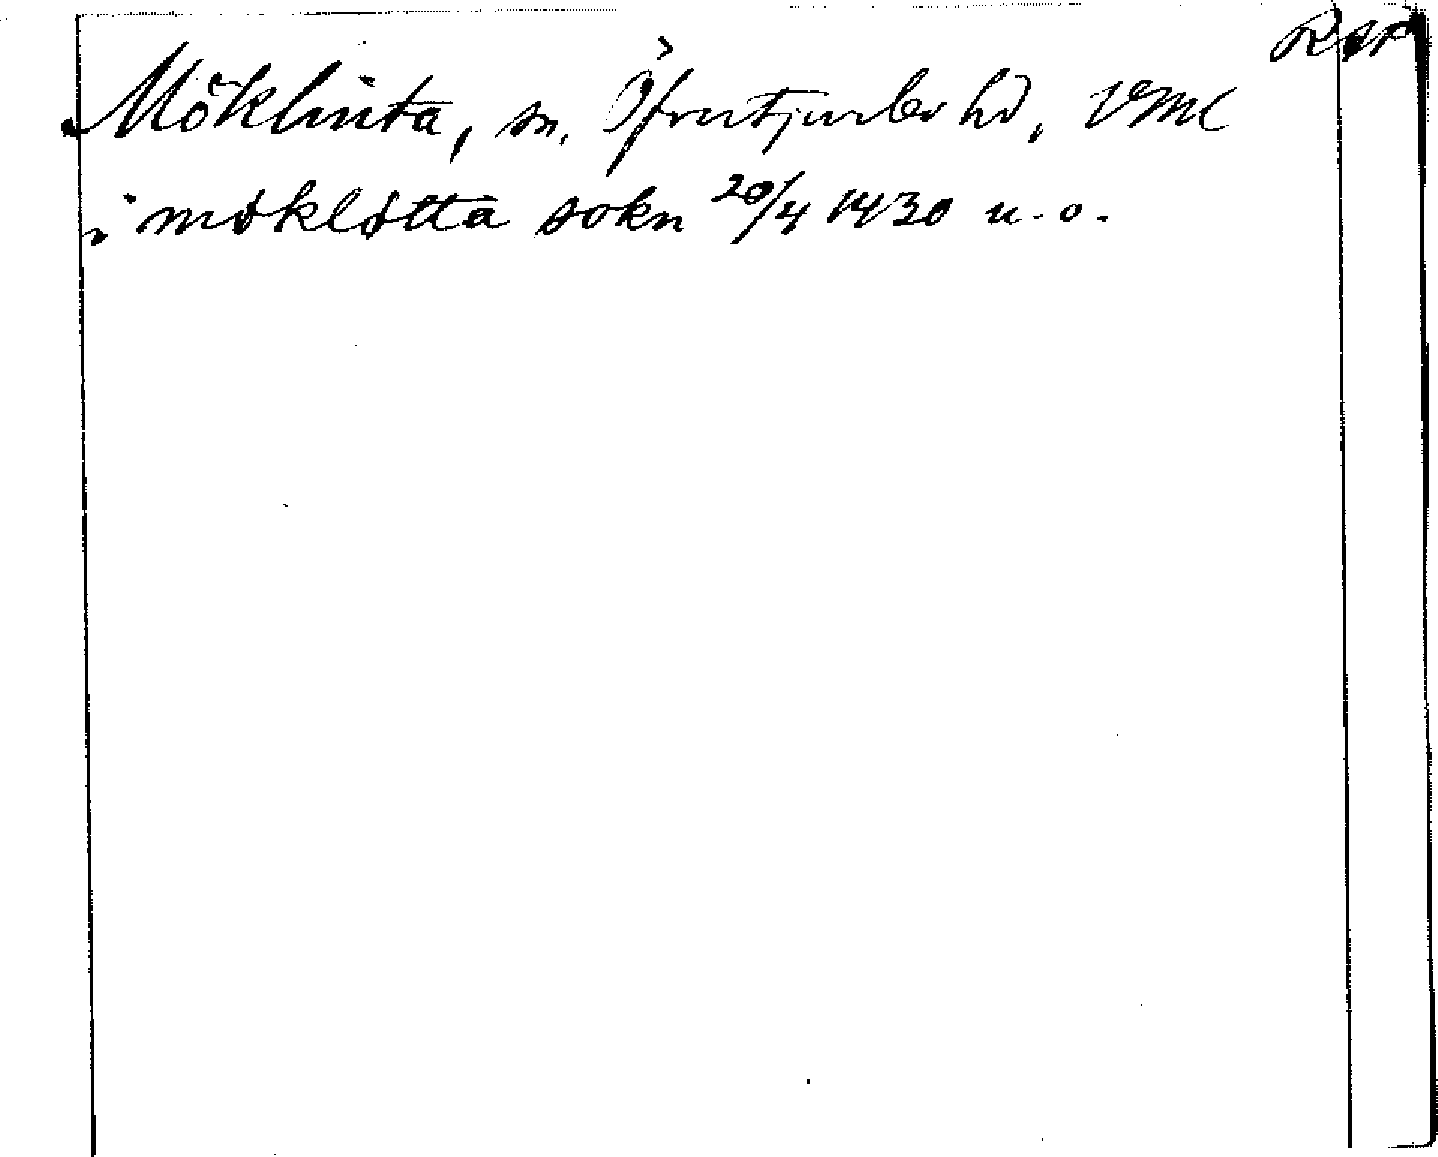 RAP
Möklinta, sn, Öfvertjurbo hd, VML
i møkløtta sokn 20/4 1430 u. o.